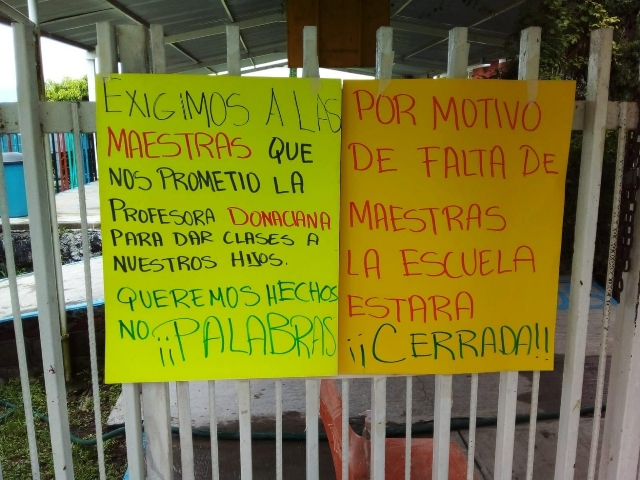 EXIGIMOS A LAS
MAESTRAS QUE
NOS PROMETIO LA
PROFESORA DONACIANA
PARA DAR CLASES A
NUESTROS HIJOS.
QUEREMOS HECHOS
NO ¡¡PALABRAS
POR MOTIVO
DE FALTA DE
MAESTRAS
LA ESCUELA
ESTARA
¡¡CERRADA!!